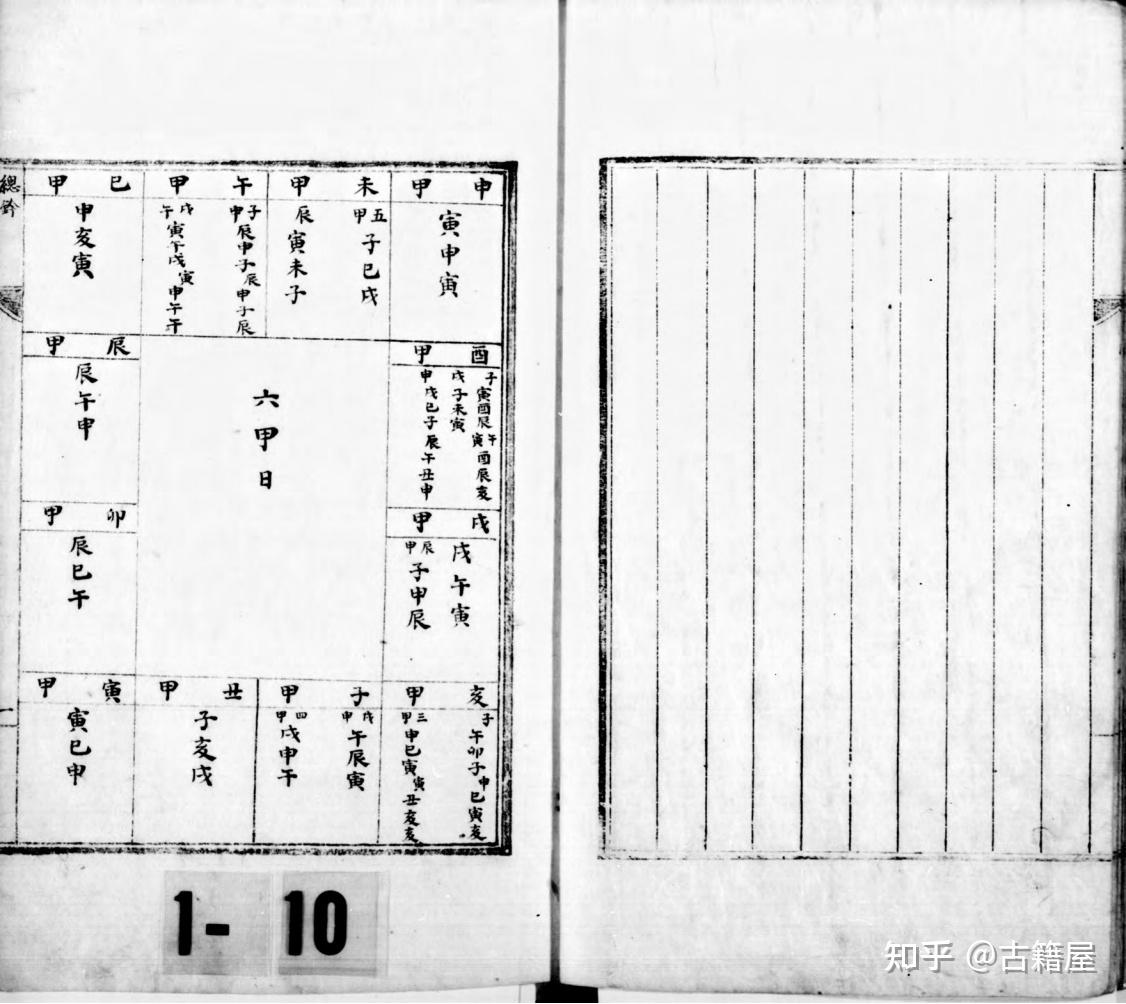 申 甲
寅申寅
未 甲
五甲
子巳戌
辰寅未子
午 甲
子申
辰申子辰申子辰
戌午
寅午戌寅申午午
巳 甲
申亥寅
總鈐
酉 甲
子寅酉辰午寅酉辰亥
戌子未寅
申戌巳子辰午丑申
辰 甲
辰午申
六甲日
戌 甲
戌午寅
辰申
子申辰
卯 甲
辰巳午
亥 甲
子午卯子申巳寅亥
三甲
申巳寅寅丑亥亥
子 甲
戌申
午辰寅
四甲
戌申午
丑 甲
子亥戌
寅 甲
寅巳申
一
1- 10
知乎 @古籍屋